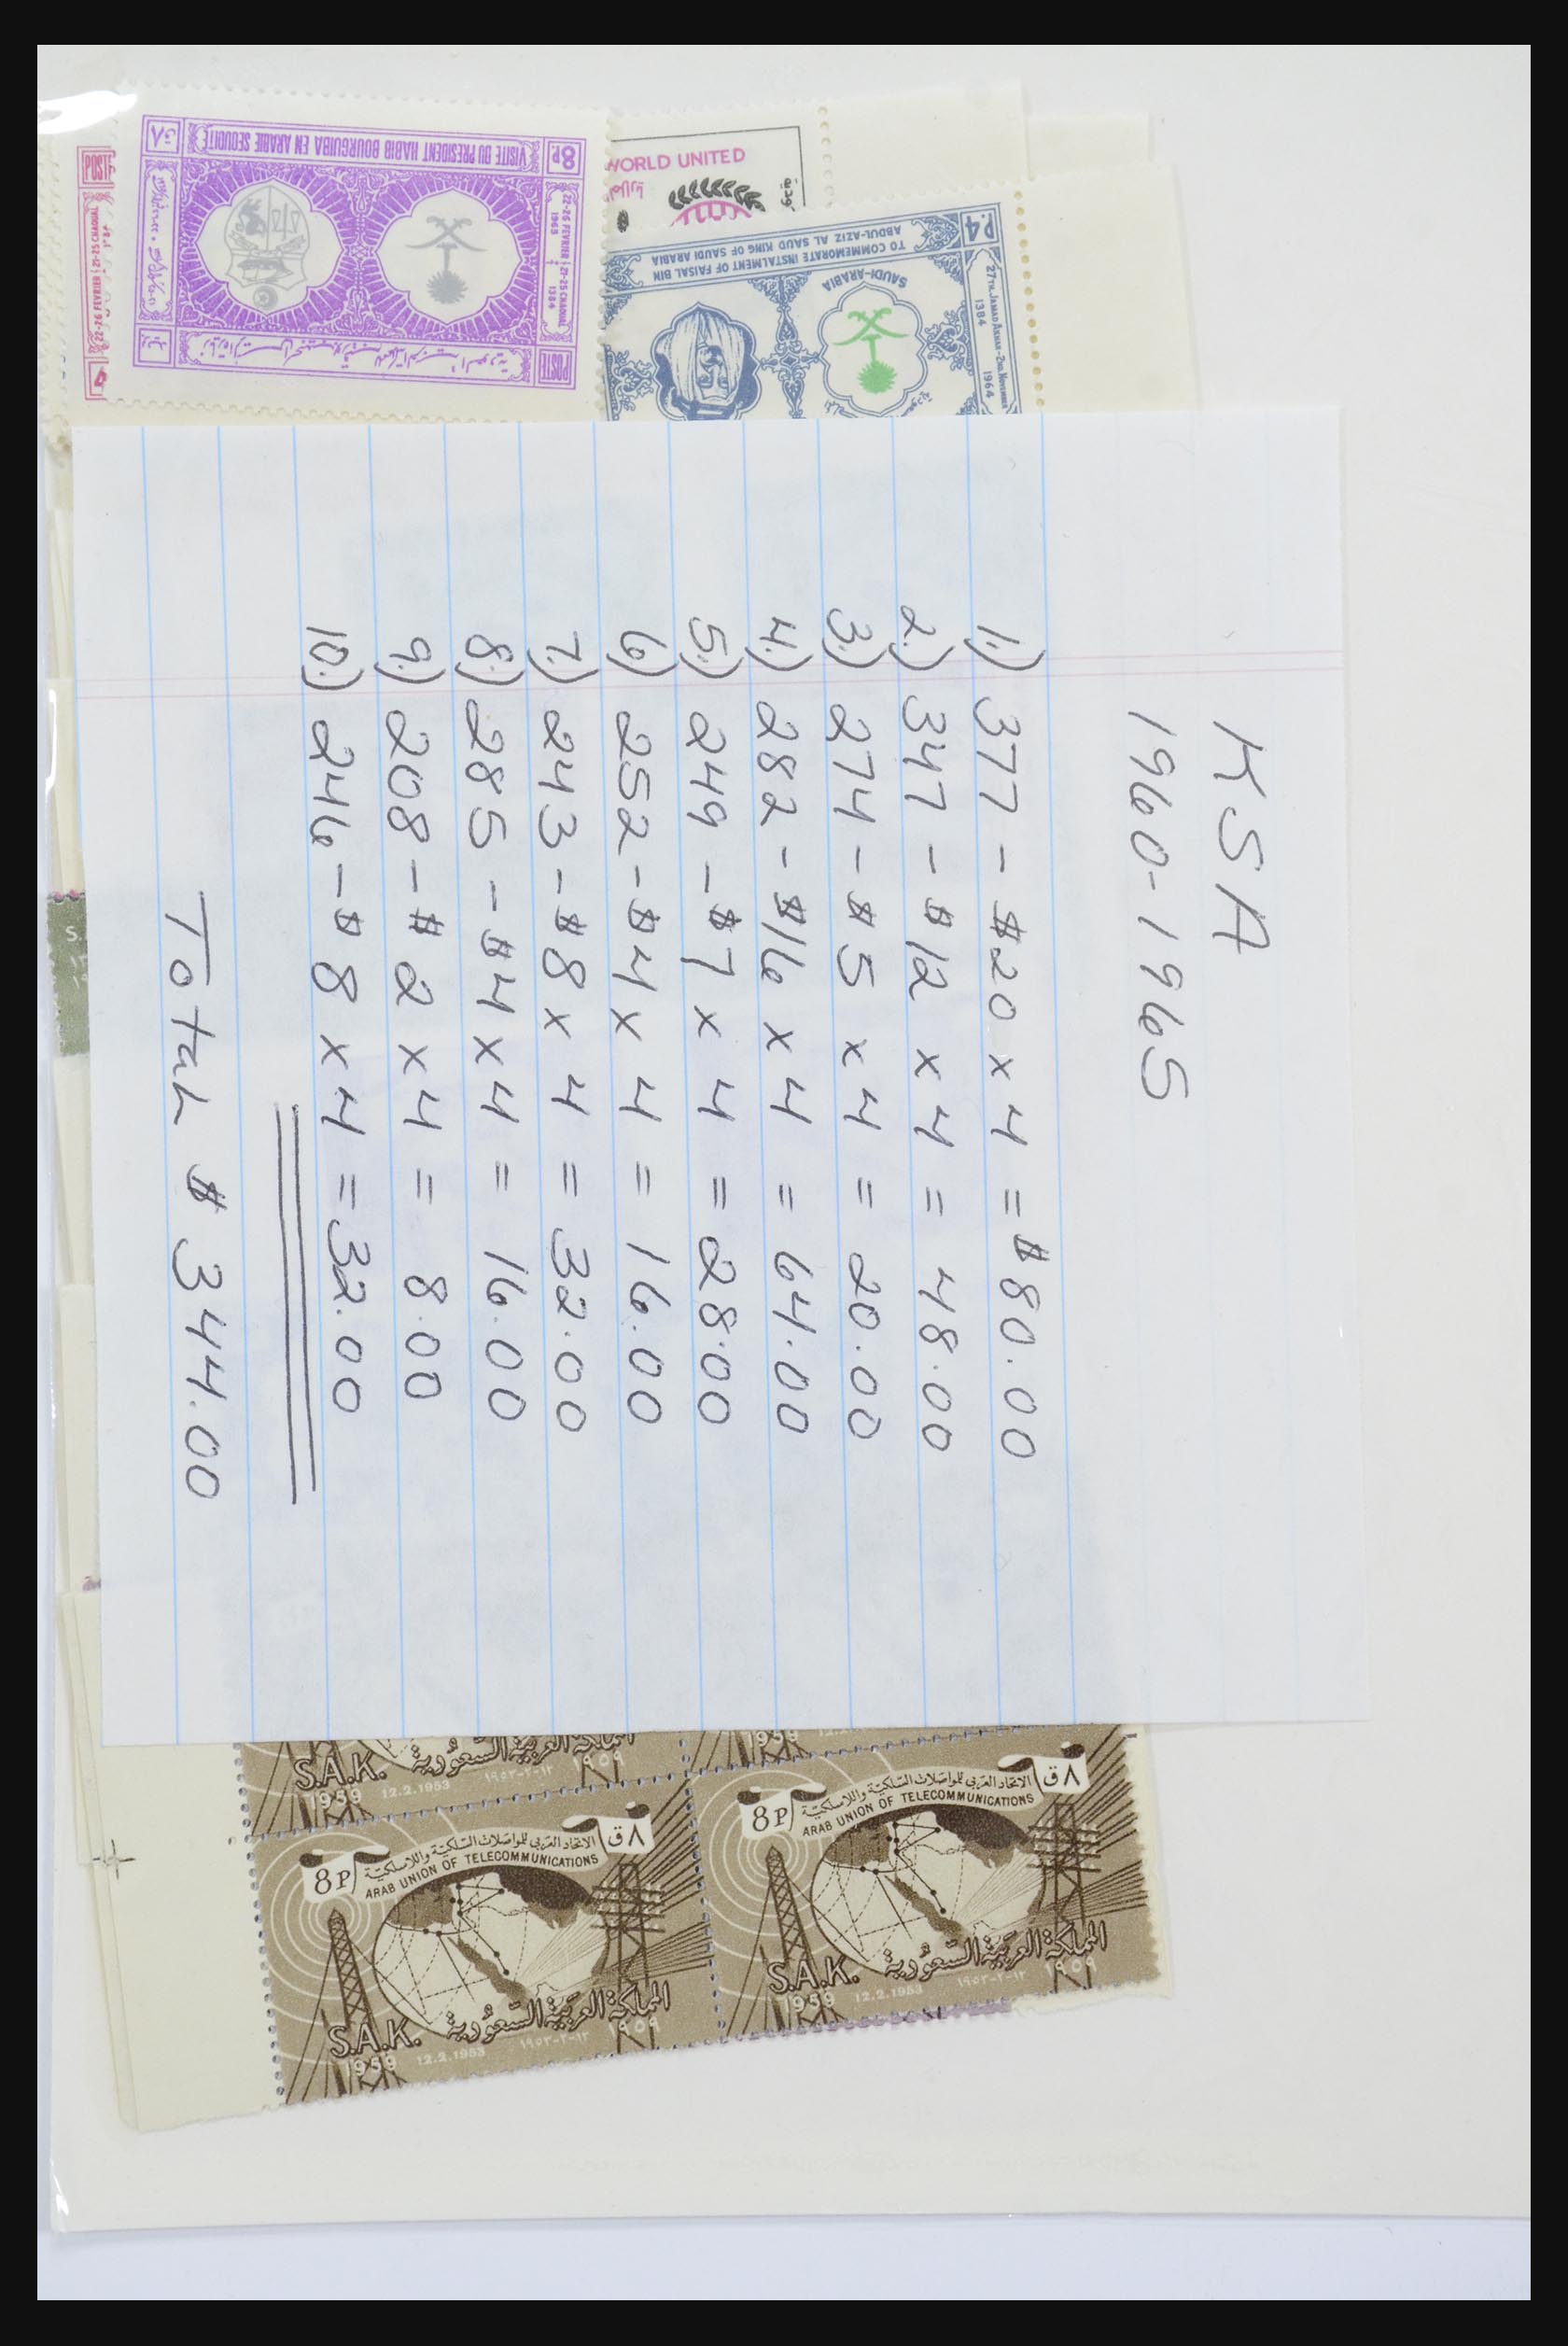 KSA
1960-1965
1.) 377 - $20 x 4 = $80.00
2.) 347 - $12 x 4 = 48.00
3.) 274 - $5 x 4 = 20.00
4.) 282 - $16 x 4 = 64.00
5.) 249 - $7 x 4 = 28.00
6) 252 - $4 x 4 = 16.00
7.) 243 - $8 x 4 = 32.00
8.) 285 - $4 x 4 = 16.00
9.) 208 - $2 x 4 = 8.00
10.) 246 - $8 x 4 = 32.00
Total $344.00
VISITE DU PRESIDENT HABIB BOURGUIBA EN ARABIE SEOUDITE
8P.
٨ق
22-26 FEVRIER 21-25 CHAOUAL
1965 1384
POSTE
POSTE
22-26 FEVRIER 21-25 CHAOUAL
WORLD UNITED
P.4
TO COMMEMORATE INSTALMENT OF FAISAL BIN
ABDUL-AZIZ AL SAUD KING OF SAUDI ARABIA
SAUDI-ARABIA
27TH. JAMAD AKHAR-2ND. NOVEMBER
1384 1964
S.
المملكة العربية السعودية
S.A.K.
1959 12.2.1953 ١٢-٢-١٩٥٣ ١٩٥٩
1959
8P ٨ق
الاتحاد العربى للمواصلات السلكية واللاسلكية
ARAB UNION OF TELECOMMUNICATIONS
المملكة العربية السعودية
S.A.K.
1959 12.2.1953 ١٢-٢-١٩٥٣ ١٩٥٩
8P ٨ق
الاتحاد العربى للمواصلات السلكية واللاسلكية
ARAB UNION OF TELECOMMUNICATIONS
المملكة العربية السعودية
S.A.K.
1959 12.2.1953 ١٢-٢-١٩٥٣ ١٩٥٩